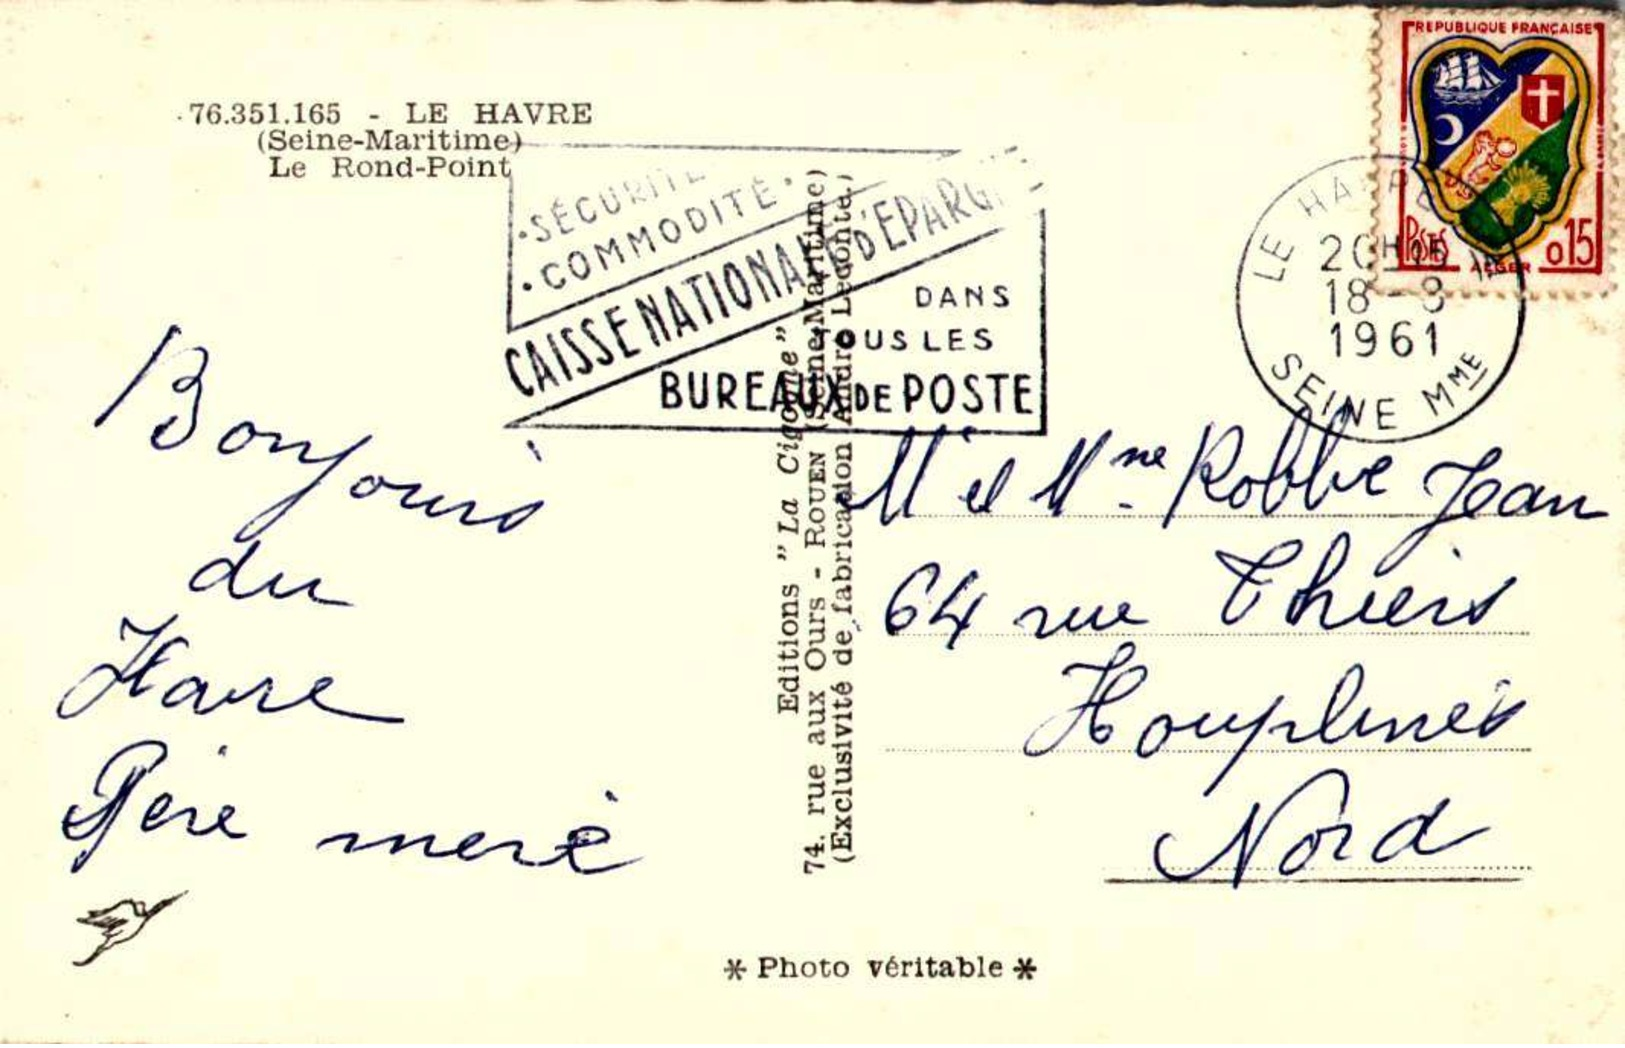 76.351.165 - LE HAVRE
(Seine-Maritime)
Le Rond-Point
REPUBLIQUE FRANÇAISE
POSTES
ALGER
0,15
LE HAVRE
18 - 8
1961
SEINE MME
• SÉCURITÉ
• COMMODITÉ •
CAISSE NATIONALE D'ÉPARGNE
DANS
TOUS LES
BUREAUX DE POSTE
Bonjours
du
Havre
Père mere
Editions "La Cigogne"
74. rue aux Ours - ROUEN (Seine-Maritime)
(Exclusivité de fabrication André Leconte.)
Mr et Mme Robbe Jean
64 rue Thiers
Houplines
Nord
* Photo véritable *